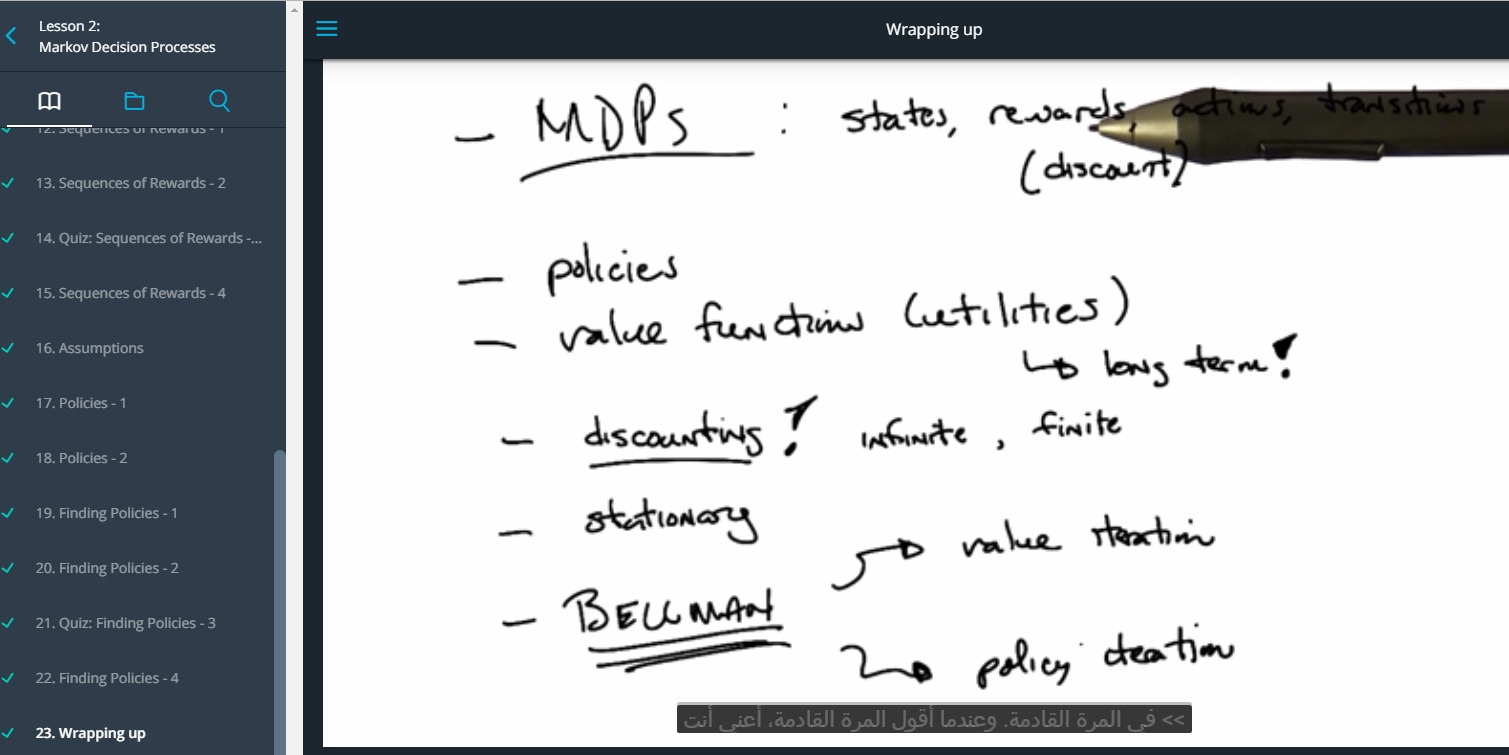 Lesson 2:
Markov Decision Processes
12. Sequences of Rewards - 1
13. Sequences of Rewards - 2
14. Quiz: Sequences of Rewards -...
15. Sequences of Rewards - 4
16. Assumptions
17. Policies - 1
18. Policies - 2
19. Finding Policies - 1
20. Finding Policies - 2
21. Quiz: Finding Policies - 3
22. Finding Policies - 4
23. Wrapping up
Wrapping up
- MDPs : states, rewards, actions, transitions
(discount)
- policies
- value functions (utilities)
↳ long term!
- discounting! infinite, finite
- stationary
→ value iteration
- BELLMAN
→ policy iteration
>> في المرة القادمة. وعندما أقول المرة القادمة، أعني أنت